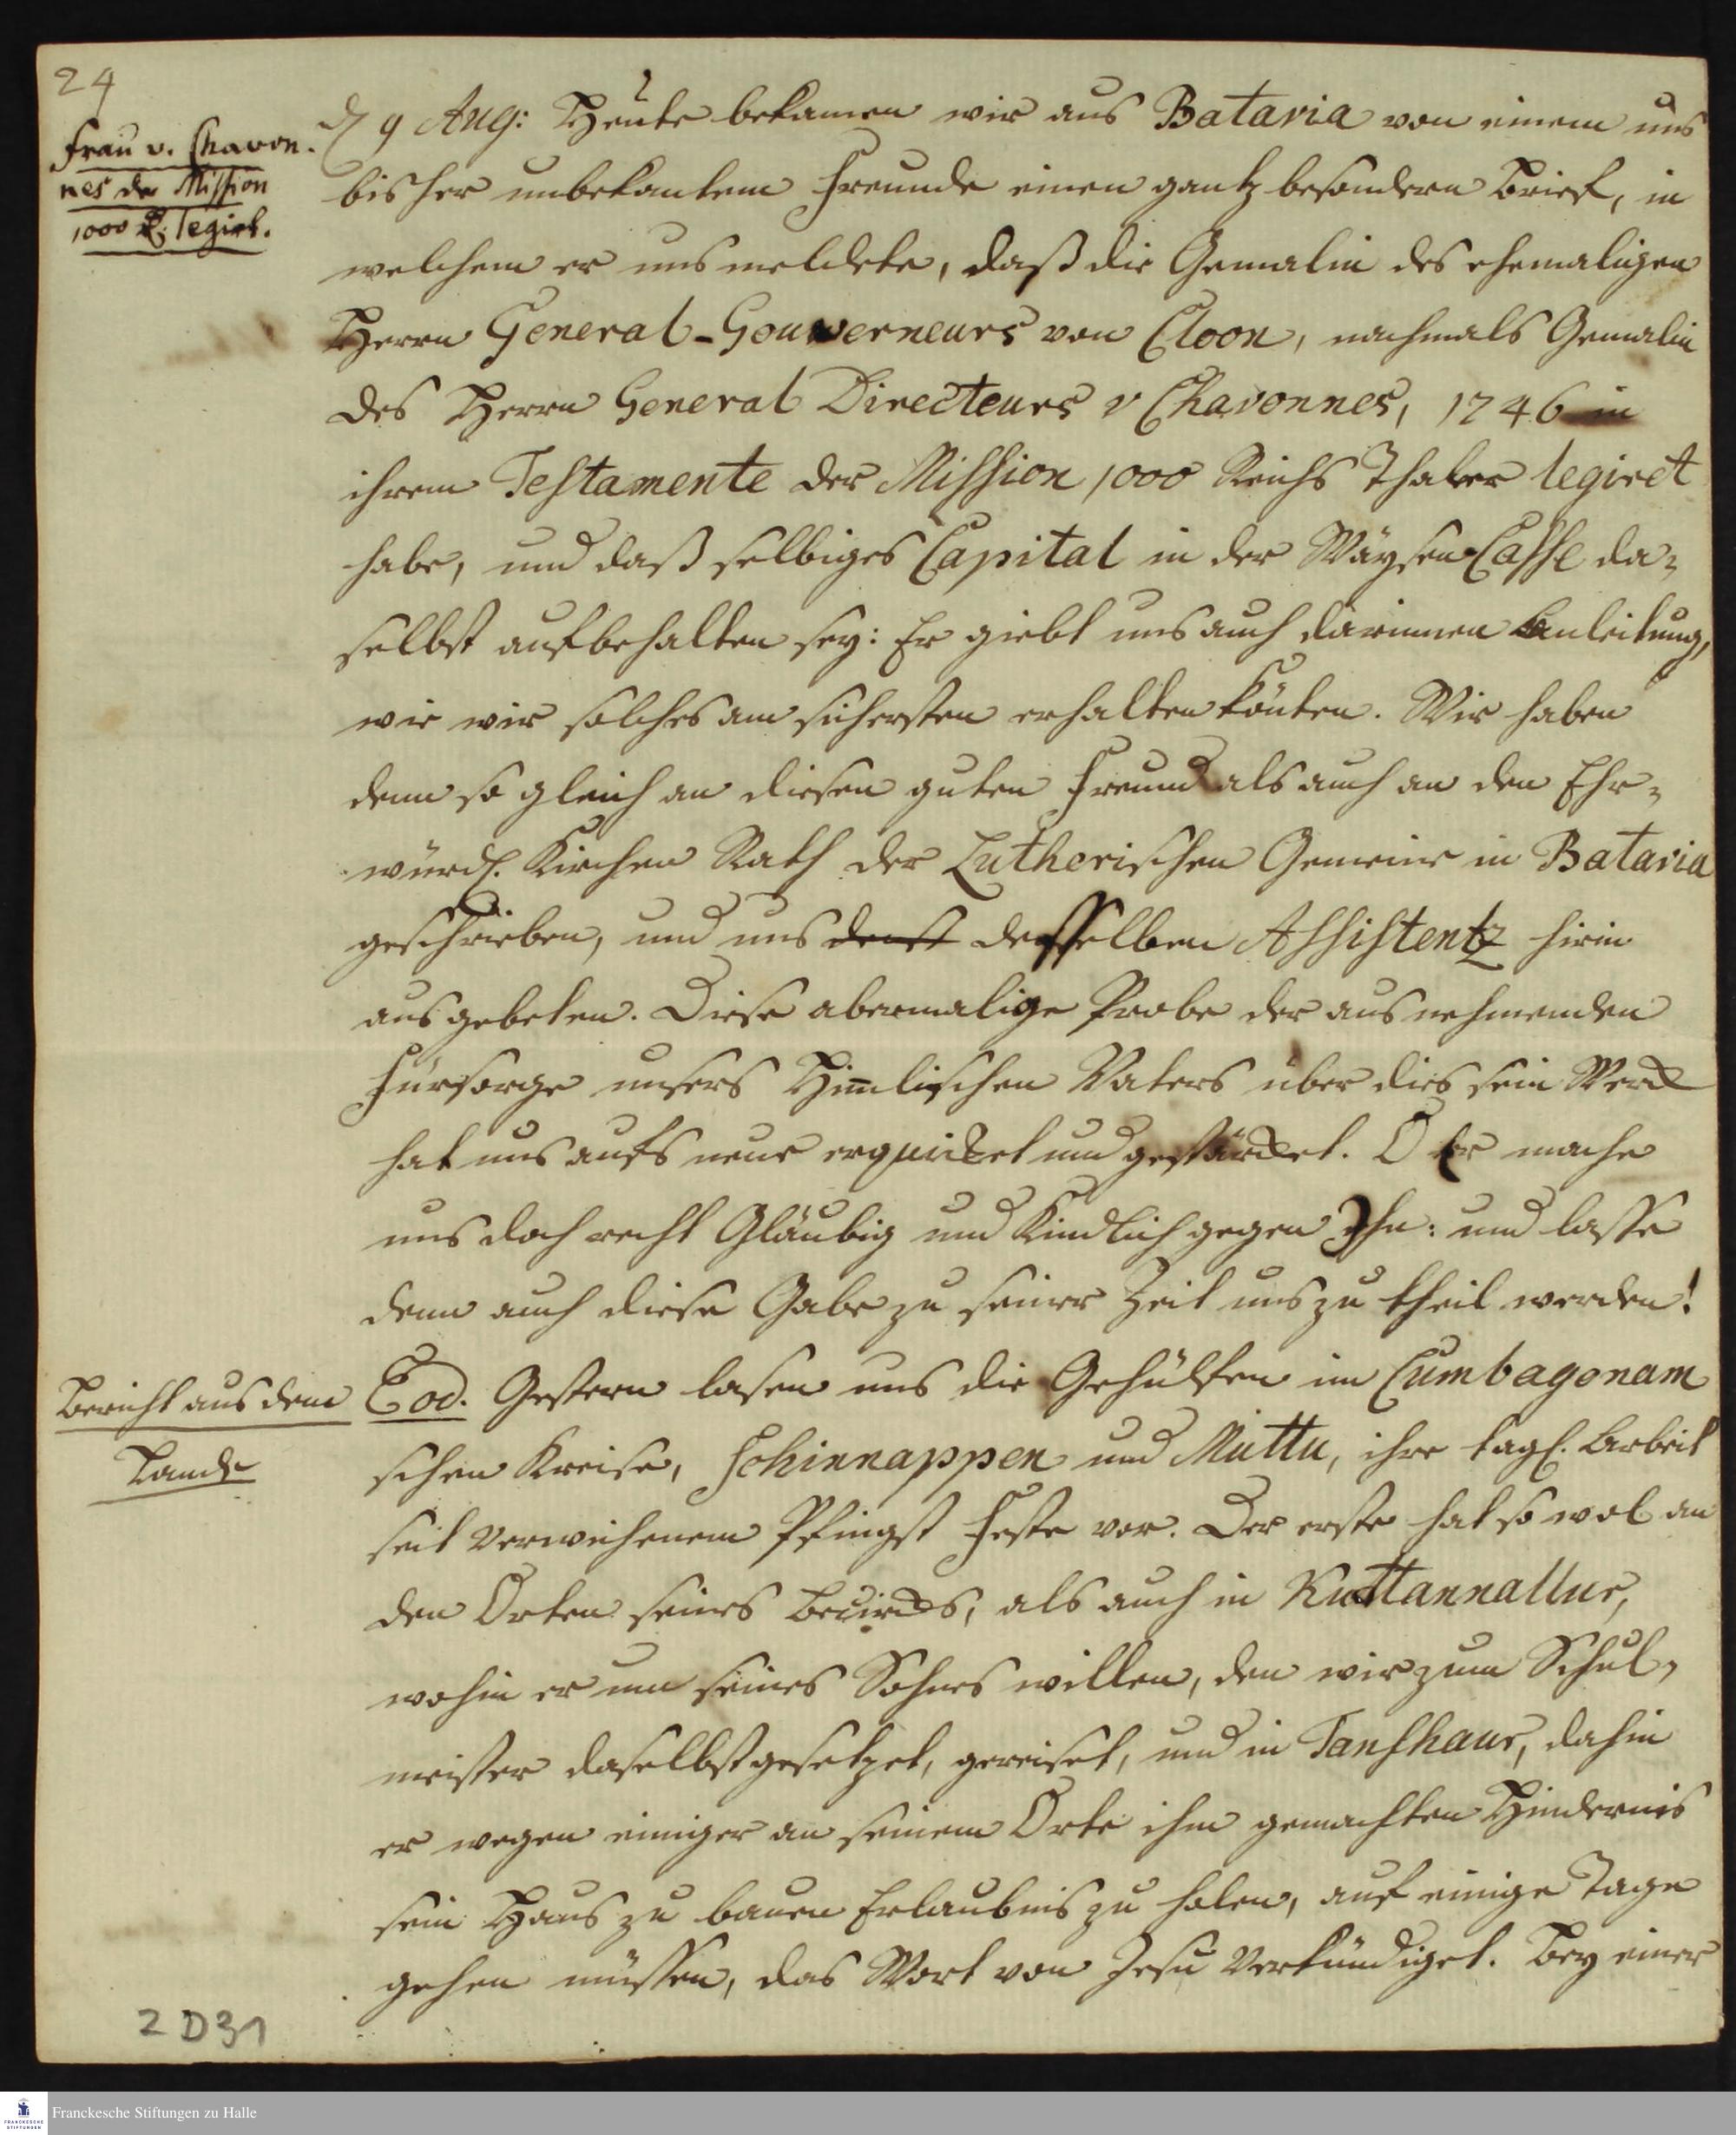 24
Frau v. Chavon-
nes der Mission
1000 legirt.
9 Aug: Heute bekamen wir aus Batavia von einem uns
bisher unbekantem Freunde einen gantz besondern Brief, in
welchem er uns meldete, daß die Gemalin des ehemaligen
Herrn General-Gouverneurs von Cloon, nachmals Gemalin
des Herrn General Directeurs v Chavonnes, 1746 in
ihrem Testamente der Mission 1000 Reichs Thaler legiret
habe, und daß selbiges Capital in der Wäysen Casse da-
selbst aufbehalten sey: Er giebt uns auch darinnen Anleitung,
wie wir solches am sichersten erhalten könten. Wir haben
denn so gleich an diesen guten Freund als auch an den Ehr-
würdl. Kirchen Rath der Lutherischen Gemeine in Batavia
geschrieben, und uns desselben Assistentz hirin
aus gebeten. Diese abermalige Probe der aus nehmenden
Fürsorge unsers Himlischen Vaters über dies sein Werck
hat uns aufs neue erquicket und gestärcket. O Er mache
uns doch recht Gläubig und Kindlich gegen Ihn: und lasse
denn auch diese Gabe zu seiner Zeit uns zu theil werden!
Bericht aus dem
Lande
Eod. Gestern lasen uns die Gehülfen im Cumbagonam
schen Kreise, Schinnappen und Muttu, ihre tägl. Arbeit
seit verwichenem Pfingst Feste vor. Der erste hat so wol an
den Orten seines Bezircks, als auch in Kuttannallur,
wohin er um seines Sohnes willen, den wir zum Schul-
meister daselbst gesetzet, gereiset, und in Tanshaur, dahin
er wegen einiger an seinem Orte ihm gemachten Hindernis
sein Haus zu bauen Erlaubnis zu holen, auf einige Tage
gehen müssen, das Wort von Jesu verkündiget. Bey einer
2 D31
Franckesche Stiftungen zu Halle